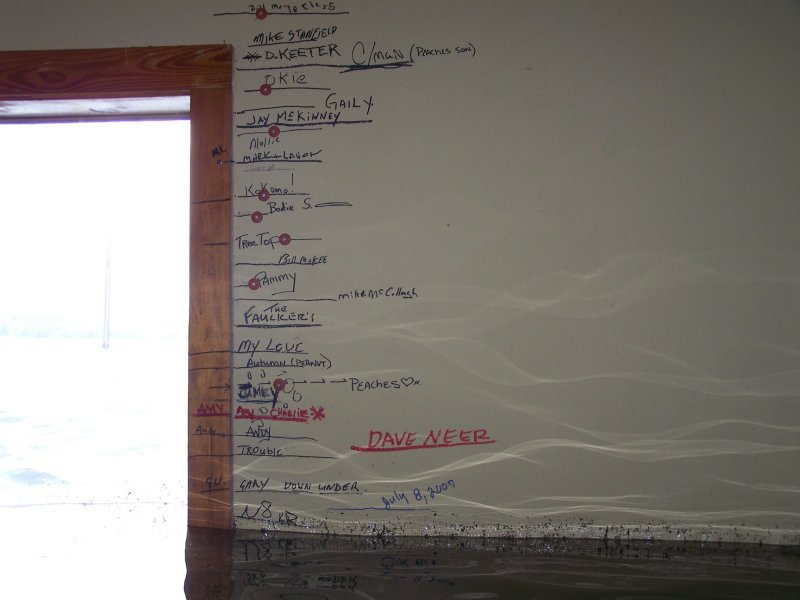 MIKE STANFIELD
D. KEETER C/MAIN (PEACHES SON)
OKIE
GAILY
JAY McKINNEY
Mollie
ML MARK + LAVON
KoKomo!
Bodie S.
TREE TOP
Pammy
MIKE McCullagh
THE
FAULKER'S
MY LOVE
AUTUMN (PEANUT)
JAMEY PEACHES
AMY AMY CHARLIE
Andy ANDY
DAVE NEER
TROUBLE
G.U. GARY DOWN UNDER
July 8, 2007
N8